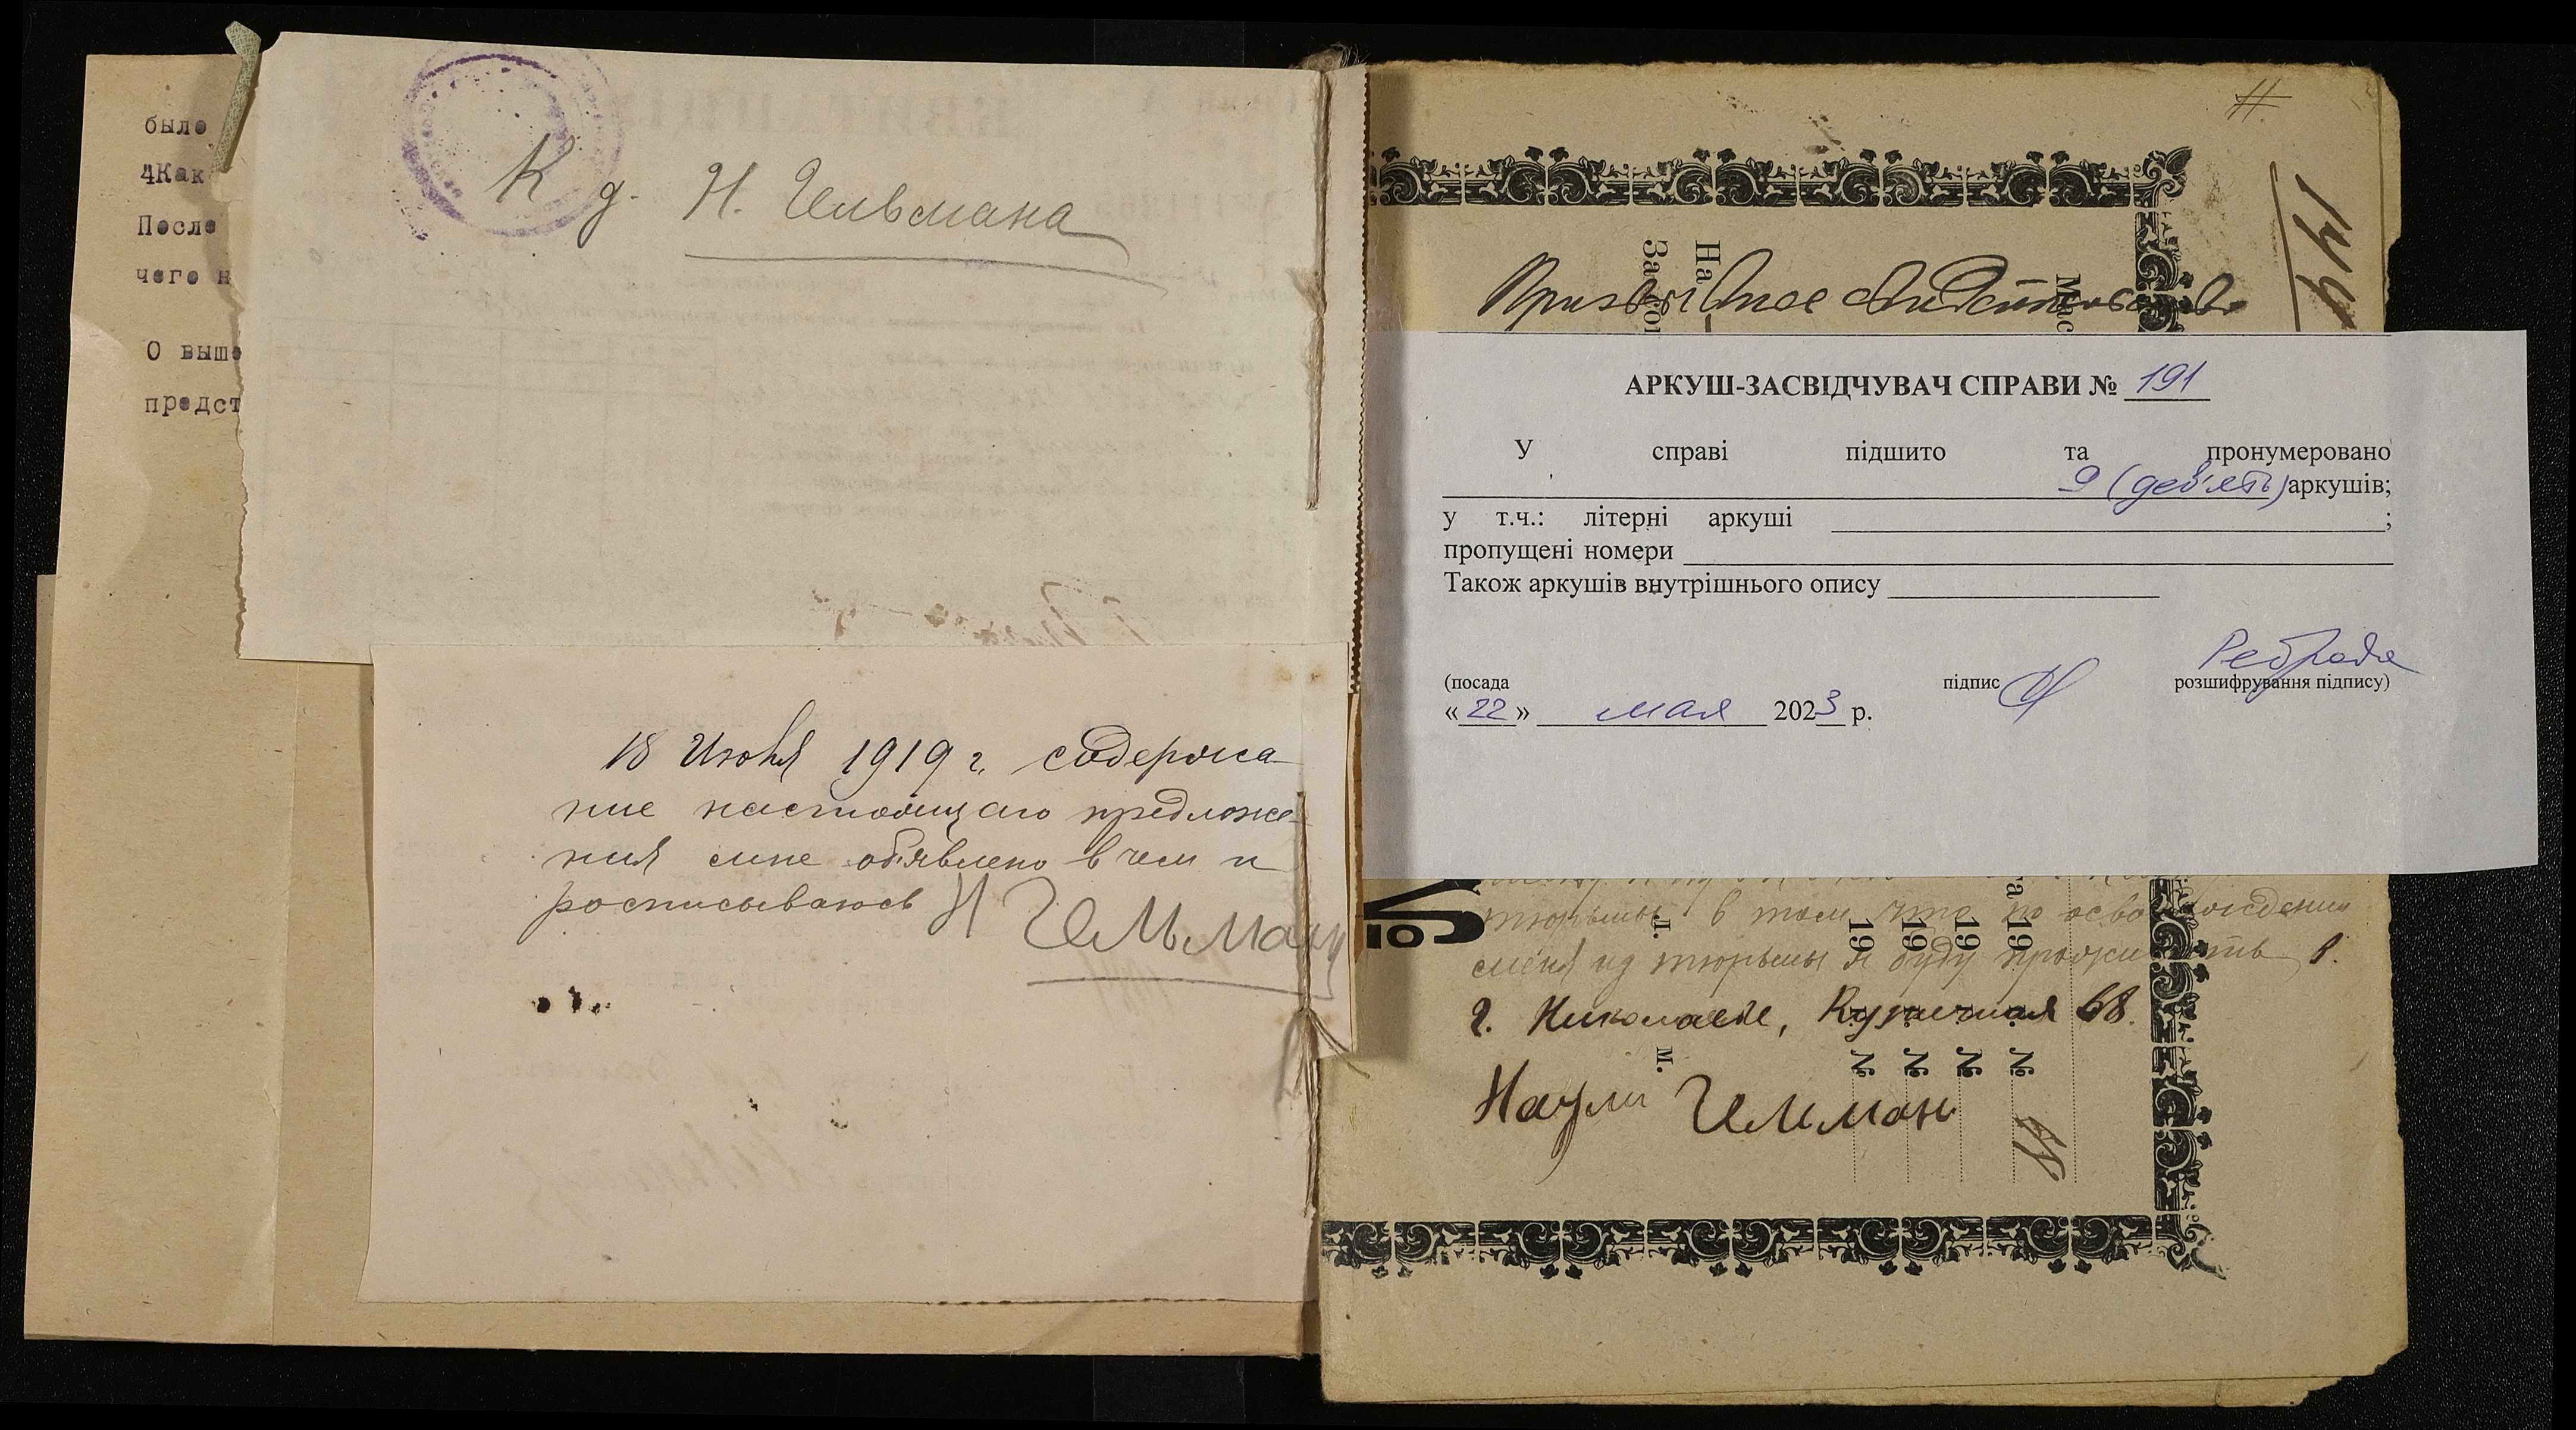 было
4Как
После
чего н
О выше
предст
К д. Н. Гельмана
18 Июня 1919 г. содержа-
ние настоящаго предложе-
ния мне об'явлено в чем и
росписываюсь Н Гельман
144
На
За
Мас
АРКУШ-ЗАСВІДЧУВАЧ СПРАВИ № 191
У справі підшито та пронумеровано
9 (дев'ять) аркушів;
у т.ч.: літерні аркуші ;
пропущені номери
Також аркушів внутрішнього опису
(посада підпис розшифрування підпису)
«22» мая 2023 р.
тюрьмы. в том что по освобождении
меня из тюрьмы я буду проживать в
г. Николаеве, Кузнечная 68.
Гельман
19 19 19 19
№ № № №
д.
м.